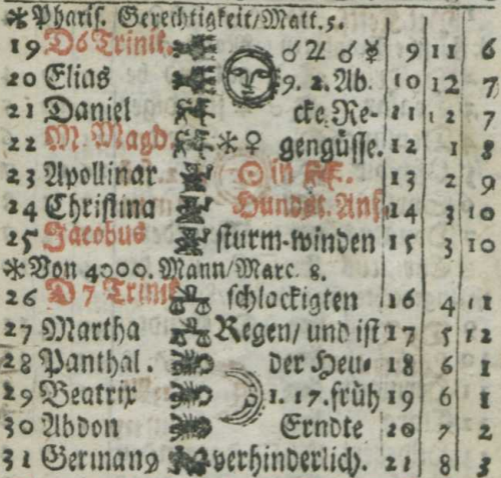 * Pharis. Gerechtigkeit/Matt. 5.
19 D 6 Trinit. ☌ ♃ ☌ ☿ 9 11 6
20 Elias 9. 2. Ab. 10 12 7
21 Daniel cke. Re- 11 12 7
22 M. Magd. * ♀ gengüsse. 12 1 8
23 Apollinar ☉ in 13 2 9
24 Christina Hundst. Anf. 14 3 10
25 Jacobus sturm-winden 15 3 10
* Von 4000. Mann/Marc. 8.
26 D 7 Trinit schlackigten 16 4 11
27 Martha Regen/ und ist 17 5 12
28 Panthal. der Heu- 18 6 1
29 Beatrix 1. 17. früh 19 6 1
30 Abdon Erndte 20 7 2
31 German9 verhinderlich. 21 8 3